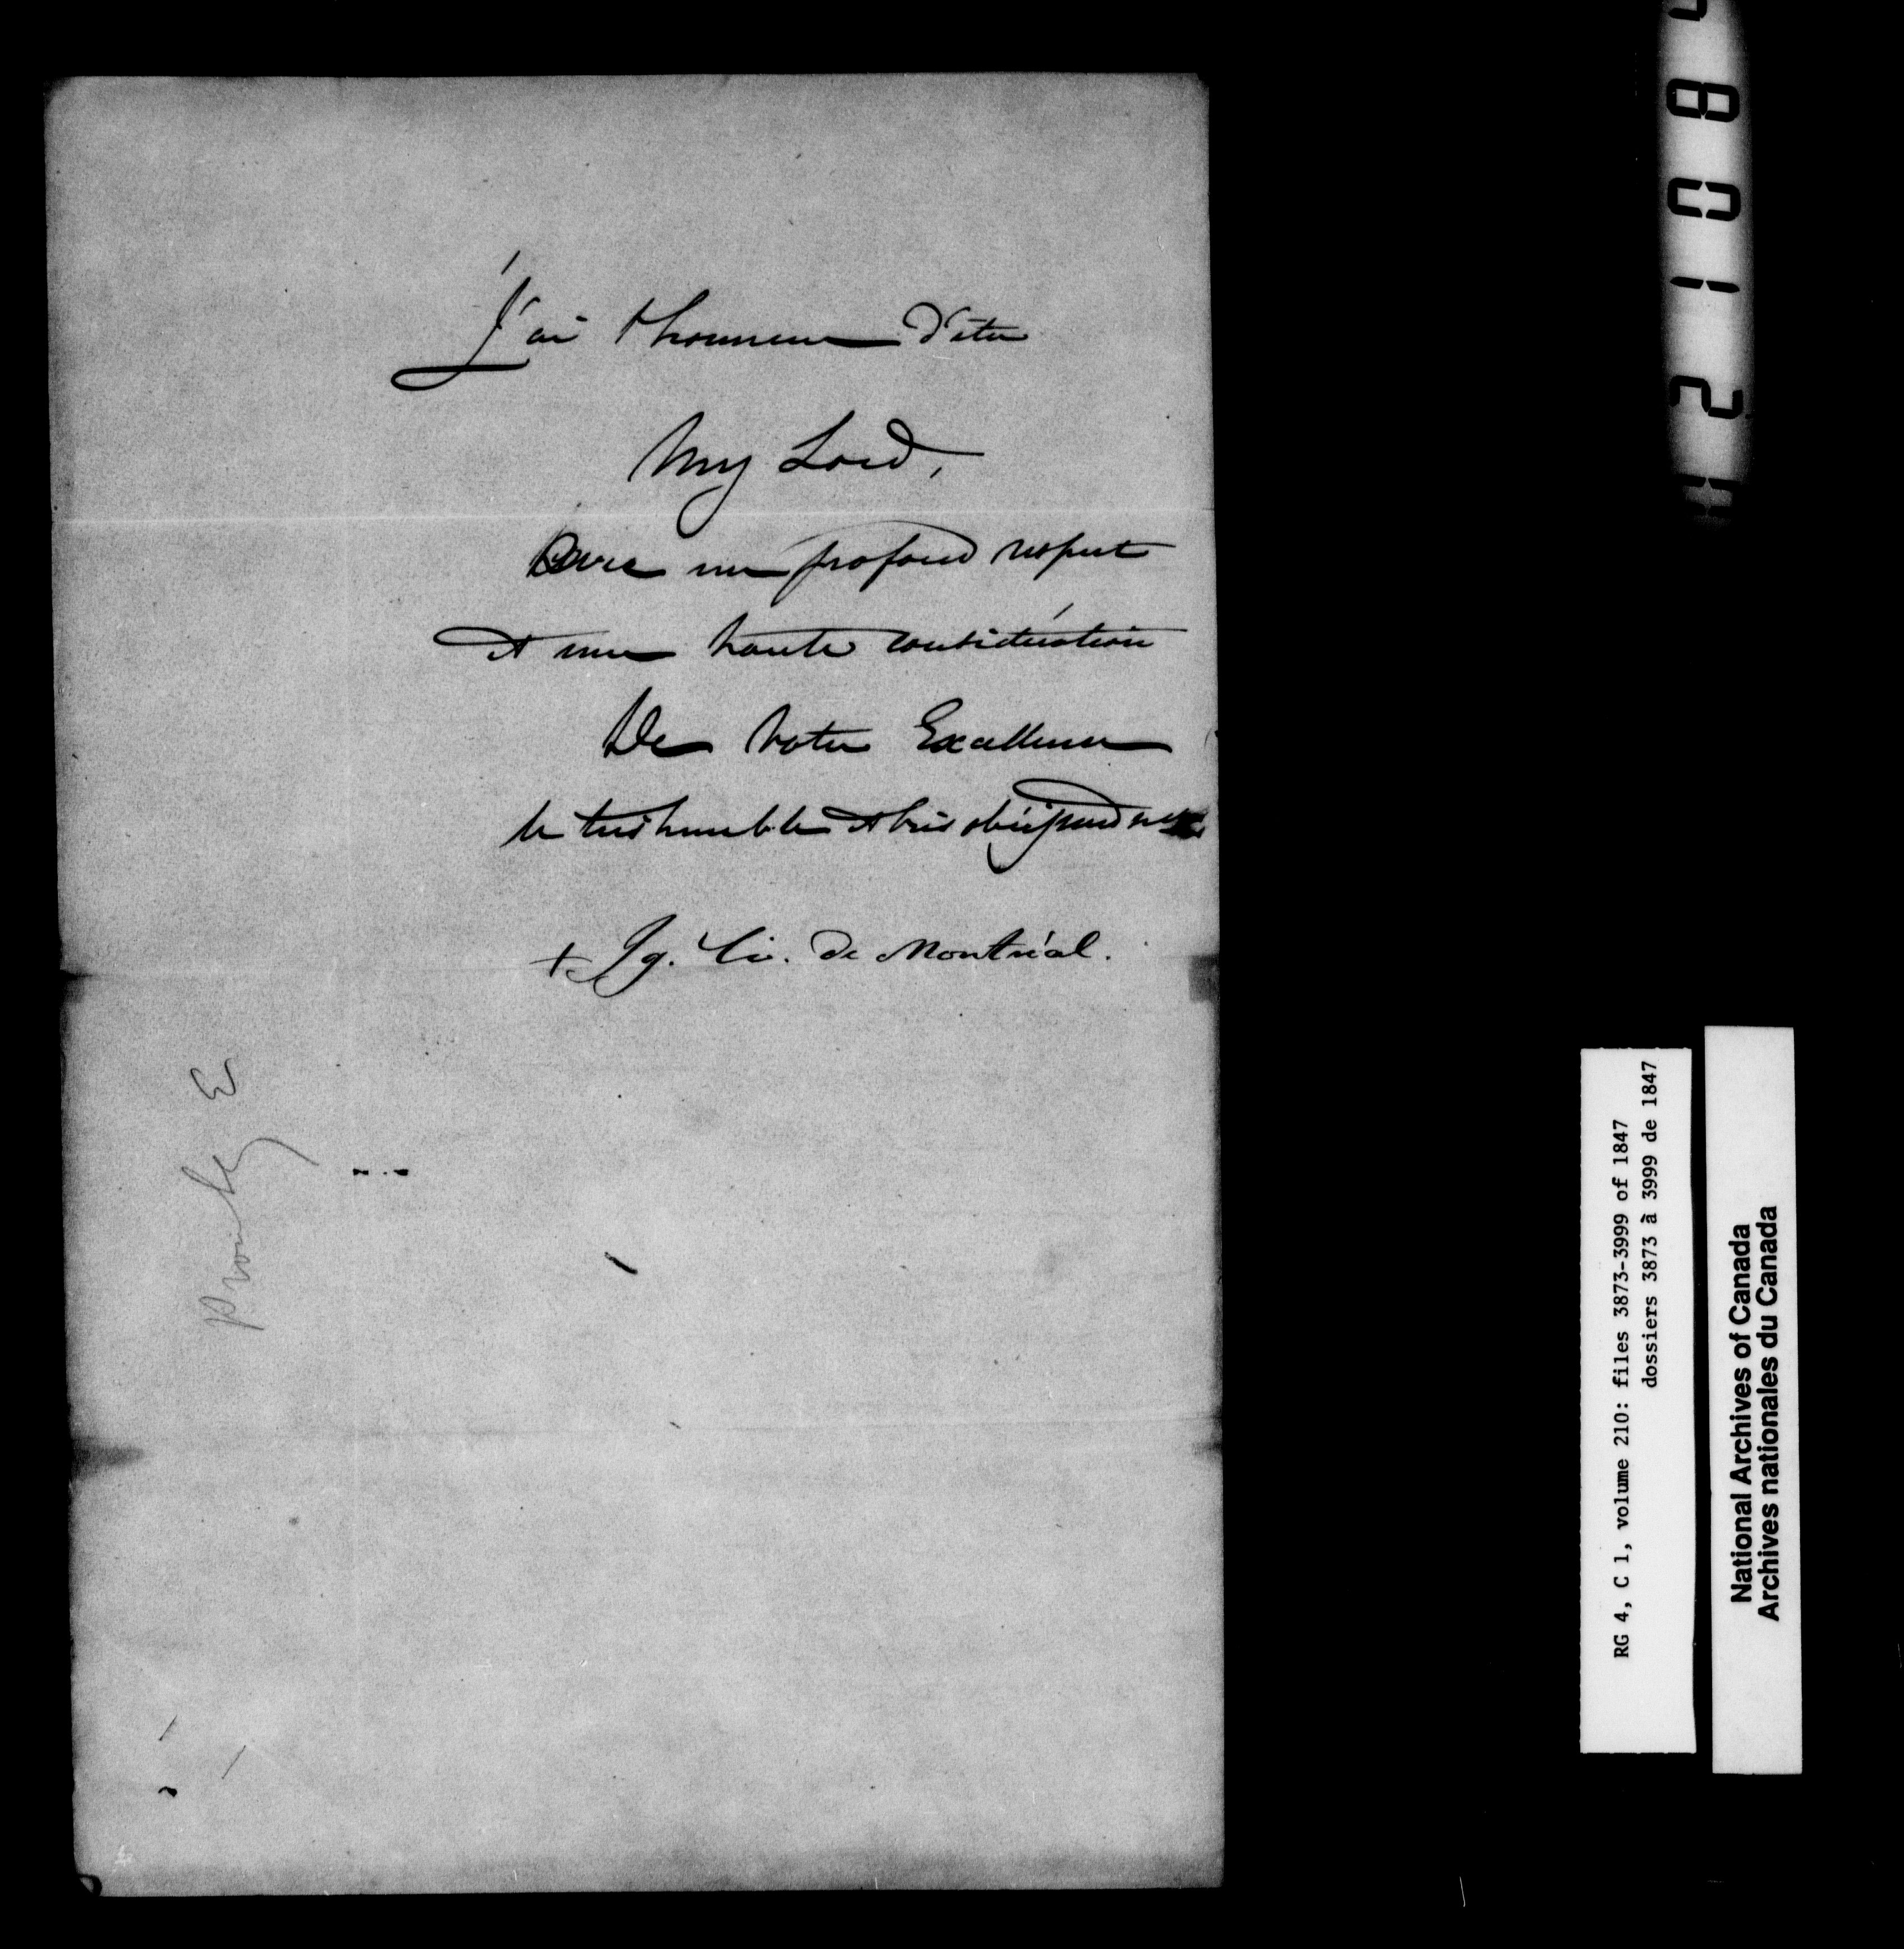 J'ai l'honneur d'être
My Lord,
Avec un profond respect
et une haute considération
De Votre Excellence
le très humble et très obéissant
+ Ig. Ev. de Montréal.
E
RG 4, C 1, volume 210: files 3873-3999 of 1847
dossiers 3873 à 3999 de 1847
National Archives of Canada
Archives nationales du Canada
2108